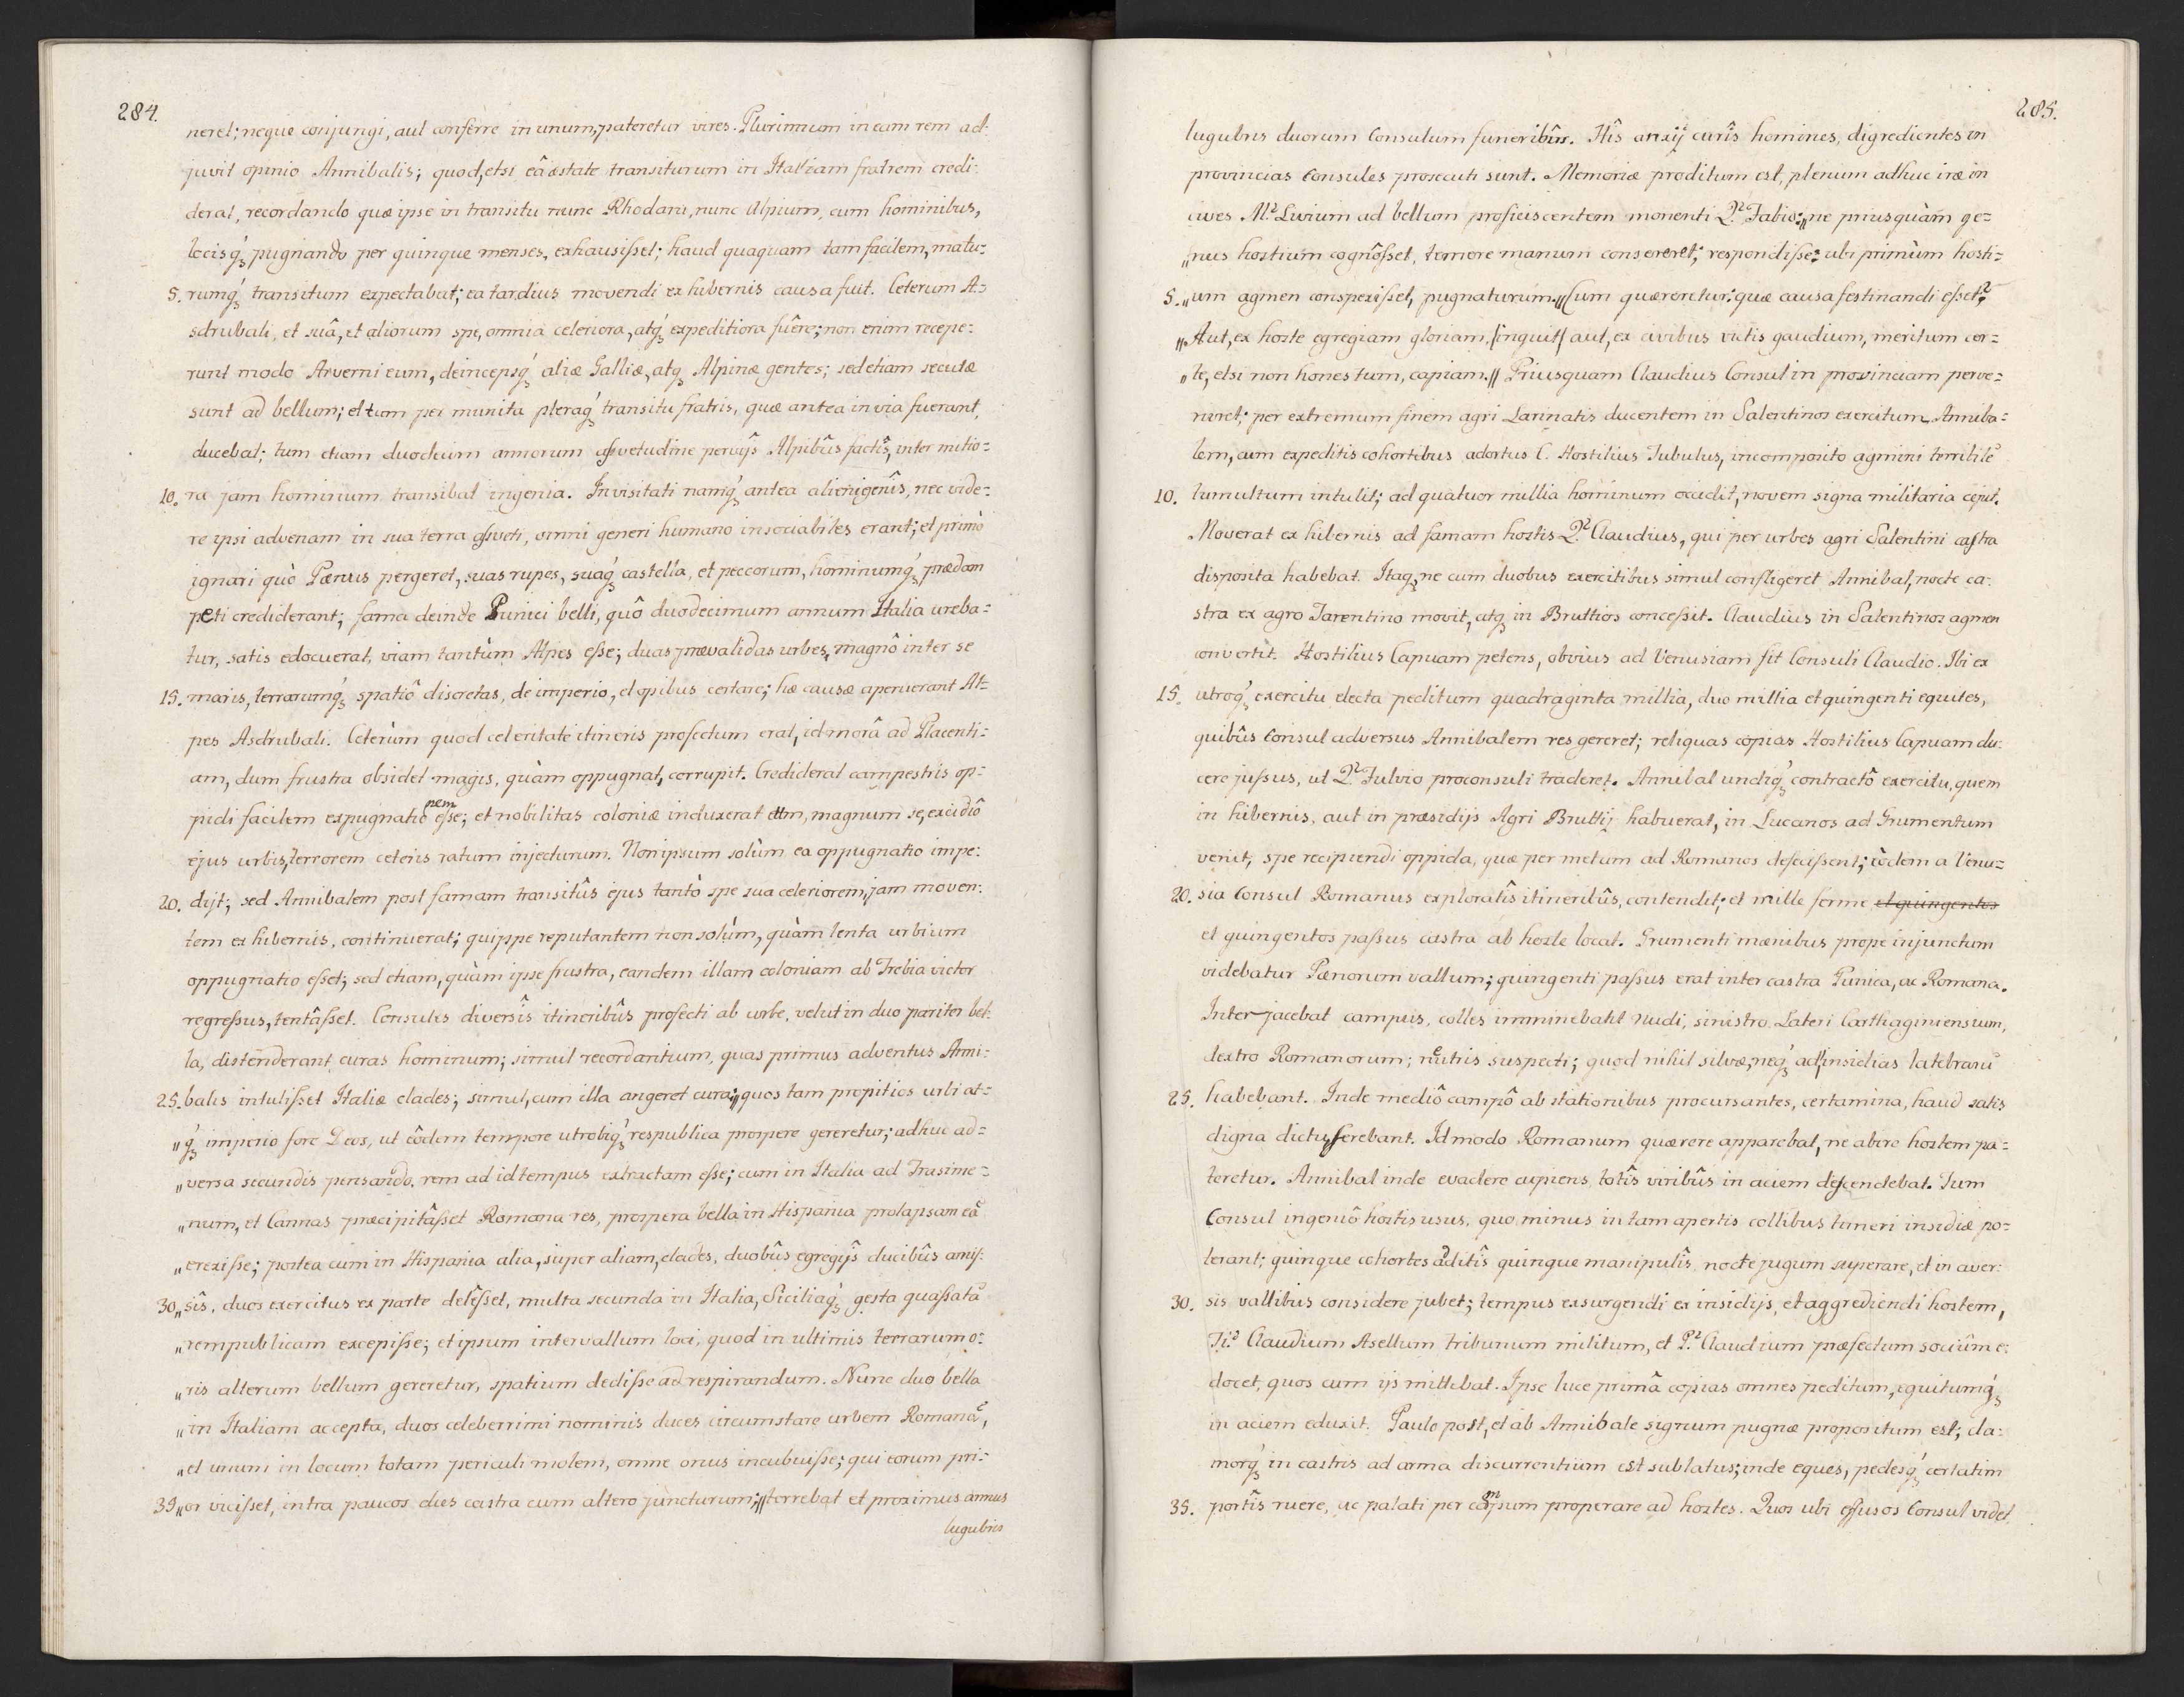 284.
neret; neque conjungi, aut conferre in unum, pateretur vires. Plurimum in eam rem ad-
juvit opinio Annibalis; quod, etsi eâ æstate transiturum in Italiam fratrem credi-
derat, recordando quæ ipse in transitu nunc Rhodani, nunc Alpium, cum hominibus,
locisq́ʒ pugnando per quinque menses, exhausisset; haud quaquam tam facilem, matu-
5. rumq́ʒ transitum expectabat; ea tardius movendi ex hibernis causa fuit. Ceterum A-
sdrubali, et suâ, et aliorum spe, omnia celeriora, atq́ʒ expeditiora fuêre; non enim recepe-
runt modo Arverni eum, deincepsq́ʒ aliæ Galliæ, atqʒ Alpinæ gentes; sed etiam secutæ
sunt ad bellum; et tum per munita pleraq́ʒ transitu fratris, quæ antea invia fuerant,
ducebat; tum etiam duodecim annorum assvetudine pervijs Alpibûs factîs, inter mitio=
10. ra jam hominum transibat ingenia. Invisitati namq́ʒ antea alienigenîs, nec vide-
re ipsi advenam in sua terra assveti, omni generi humano insociabiles erant; et primò
ignari quò Pænus pergeret, suas rupes, suaq́ʒ castella, et peccorum, hominumq́ʒ prædam
peti crediderant; fama deinde Punici belli, quô duodecimum annum Italia ureba=
tur, satis edocuerat, viam tantùm Alpes esse; duas prævalidas urbes, magnô inter se
15. maris, terrarumq́ʒ spatiô discretas, de imperio, et opibus certare; hæ causæ aperuerant Al=
pes Asdrubali. Ceterùm quod celeritate itineris profectum erat, id morâ ad Placenti=
am, dum frustra obsidet magis, quàm oppugnat, corrupit. Crediderat campestris op=
pidi facilem expugnationem esse; et nobilitas coloniæ induxerat eum, magnum se, excidiô
ejus urbis, terrorem ceteris ratum injecturum. Non ipsum solùm ea oppugnatio impe-
20. dijt; sed Annibalem post famam transitûs ejus tantò spe sua celeriorem, jam moven-
tem ex hibernis, continuerat; quippe reputantem non solùm, quàm lenta urbium
oppugnatio esset; sed etiam, quàm ipse frustra, eandem illam coloniam ab Trebia victor
regressus, tentâsset. Consules diversîs itineribûs profecti ab urbe, velut in duo pariter bel-
la, distenderant curas hominum; simul recordantium, quas primus adventus Anni-
25. balis intulisset Italiæ clades; simul, cum illa angeret cura; „quos tam propitios urbi at=
„q́ʒ imperio fore Deos, ut eôdem tempore utrobiq́ʒ respublica prospere gereretur; adhuc ad=
„versa secundis pensando, rem ad id tempus extractam esse; cum in Italia ad Trasime=
„num, et Cannas præcipitâsset Romana res, prospera bella in Hispania prolapsam eã
„erexisse; postea cum in Hispania alia, super aliam, clades, duobûs egregijs ducibûs amis-
30. „sîs, duos exercitus ex parte delêsset, multa secunda in Italia, Siciliaq́ʒ gesta quassatã
„rempublicam excepisse; et ipsum intervallum loci, quod in ultimis terrarum o-
„ris alterum bellum gereretur, spatium dedisse ad respirandum. Nunc duo bella
„in Italiam accepta, duos celeberrimi nominis duces circumstare urbem Romanã,
„et unum in locum totam periculi molem, omne onus incubuisse; qui eorum pri=
35. „or vicisset, intra paucos dies castra cum altero juncturum; „terrebat et proximus annus
lugubris
285.
lugubris duorum Consulum funeribûs. Hîs anxij curîs homines, digredientes in
provincias Consules prosecuti sunt. Memoriæ proditum est, plenum adhuc iræ in
cives M. Livium ad bellum proficiscentem monenti Q. Fabio: „ne priusquàm ge=
„nus hostium cognôsset, temere manum consereret; respondisse: ubi primùm hosti=
5. „um agmen conspexisset, pugnaturum. „Cum quæreretur: quæ causa festinandi esset?
„Aut, ex hoste egregiam gloriam, (inquit) aut, ex civibus victis gaudium, meritum cer=
„te, etsi non honestum, capiam.„ Priusquam Claudius Consul in provinciam perve=
niret; per extremum finem agri Larinatis ducentem in Salentinos exercitum Anniba=
lem, cum expeditis cohortibus adortus C. Hostilius Tubulus, incomposito agmini terribilẽ
10. tumultum intulit; ad quatuor millia hominum occidit, novem signa militaria cepit.
Moverat ex hibernis ad famam hostis Q. Claudius, qui per urbes agri Salentini castra
disposita habebat. Itaqʒ ne cum duobus exercitibus simul confligeret Annibal, nocte ca-
stra ex agro Tarentino movit, atqʒ in Bruttios concessit. Claudius in Salentinos agmen
convertit. Hostilius Capuam petens, obvius ad Venusiam fit Consuli Claudio. Ibi ex
15. utroq́ʒ exercitu electa peditum quadraginta millia, duo millia et quingenti equites,
quibûs Consul adversus Annibalem res gereret; reliquas copias Hostilius Capuam du-
cere jussus, ut Q. Fulvio proconsuli traderet. Annibal undiq́ʒ contractô exercitu, quem
in hibernis, aut in præsidijs Agri Bruttij habuerat, in Lucanos ad Grumentum
venit, spe recipiendi oppida, quæ per metum ad Romanos descissent; eòdem a Venu=
20. sia Consul Romanus exploratîs itineribûs, contendit; et mille ferme et quingentos
et quingentos passus castra ab hoste locat. Grumenti mænibus prope injunctum
videbatur Pænorum vallum; quingenti passus erat inter castra Punica, ac Romana.
Interjacebat campus, colles imminebant nudi, sinistro Lateri Carthaginiensium,
dextro Romanorum; neutris suspecti; quod nihil silvæ, neq́ʒ ad insidias latebrarũ
25. habebant. Inde mediô campô ab stationibus procursantes, certamina, haud satis
digna dictu, serebant. Id modo Romanum quærere apparebat, ne abire hostem pa=
teretur. Annibal inde evadere cupiens, totîs viribûs in aciem descendebat. Tum
Consul ingeniô hostis usus, quo minus in tam apertis collibus timeri insidiæ po=
terant; quinque cohortes additîs quinque manipulîs nocte jugum superare, et in aver-
30. sis vallibus considere jubet; tempus exsurgendi ex insidijs, et aggrediendi hostem,
Ti. Claudium Asellum tribunum militum, et P. Claudium præfectum sociûm e-
docet, quos cum ijs mittebat. Ipse luce primâ copias omnes peditum, equitumq́ʒ
in aciem eduxit. Paulo post, et ab Annibale signum pugnæ propositum est; cla-
morq́ʒ in castris ad arma discurrentium est sublatus; inde eques, pedesq́ʒ certatim
35. portîs ruere, ac palati per campum properare ad hostes. Quos ubi effusos Consul videt